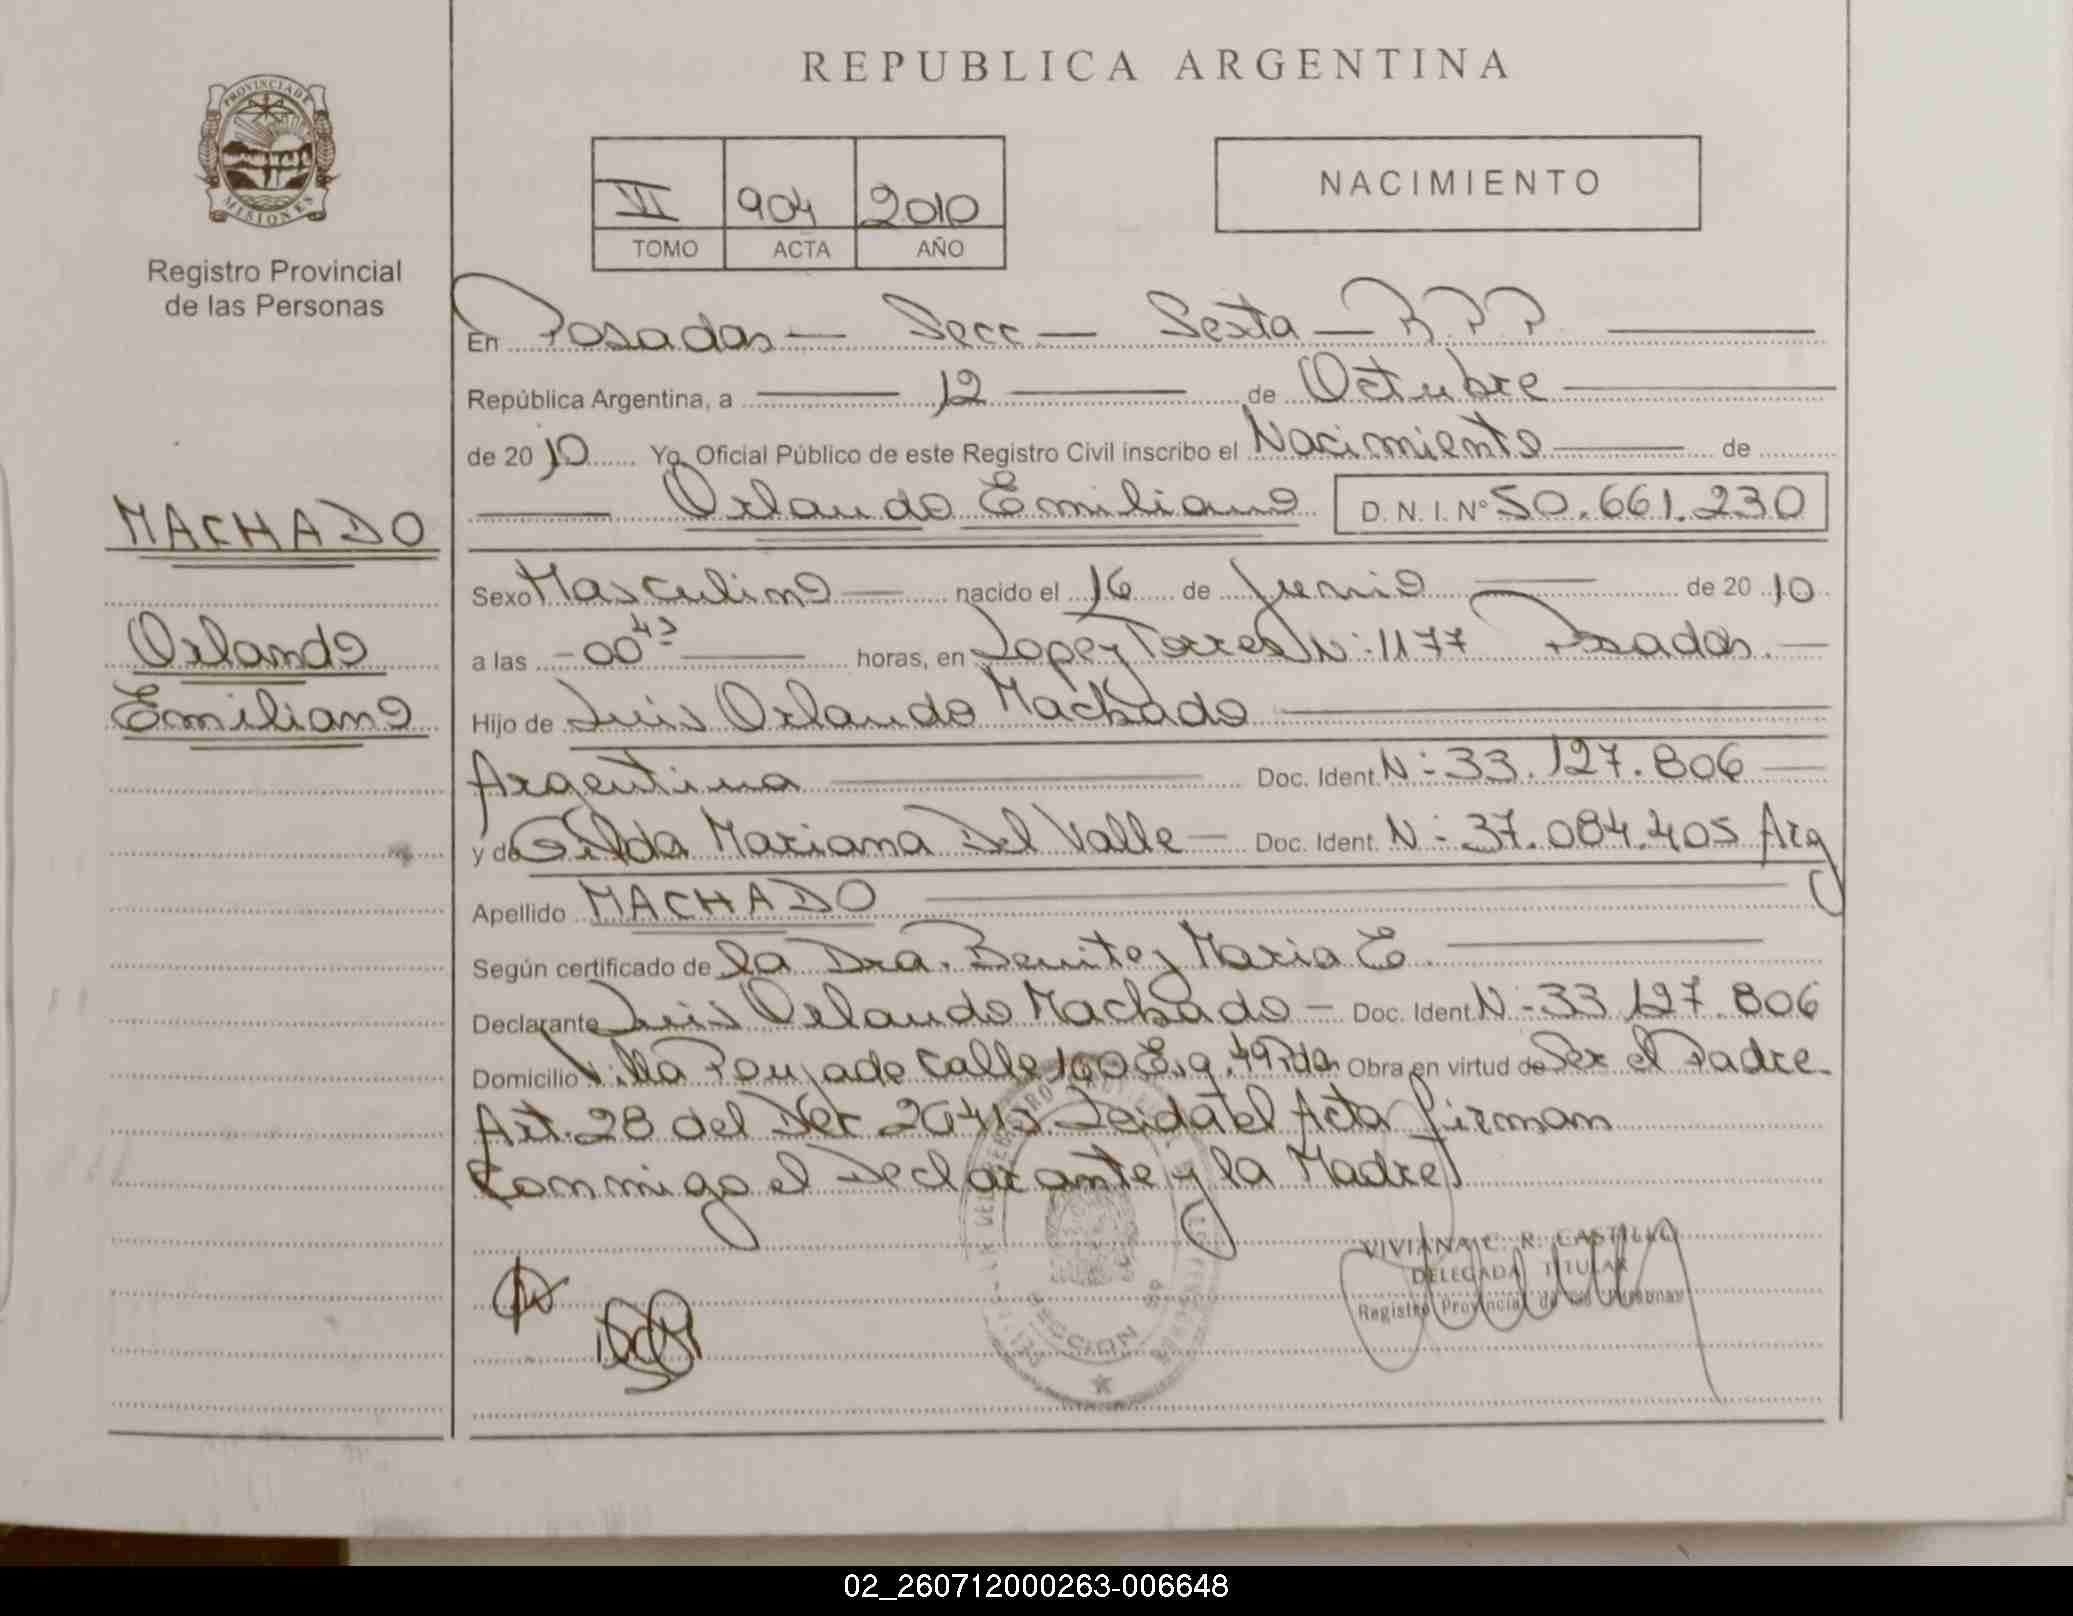 REPUBLICA ARGENTINA
PROVINCIA DE
MISIONES
Registro Provincial
de las Personas
VI 904 2010
TOMO ACTA AÑO
NACIMIENTO
En Posadas — Secc — Sexta — R.P.P.
República Argentina, a — 12 — de Octubre
de 2010 Yo, Oficial Público de este Registro Civil inscribo el Nacimiento — de
Orlando Emiliano D.N.I. Nº 50.661.230
MACHADO
Orlando
Emiliano
Sexo Masculino — nacido el 16 de Junio — de 2010
a las - 00 45 — horas, en Lopez Torres N: 1177 Posadas. —
Hijo de Luis Orlando Machado
Argentina — Doc. Ident. N: 33.127.806 —
y de Gilda Mariana Del Valle — Doc. Ident. N: 37.084.405 Arg
Apellido MACHADO
Según certificado de la Dra. Benitez Maria E
Declarante Luis Orlando Machado — Doc. Ident. N: 33.127.806
Domicilio Villa Poujade Calle 160 Obra en virtud de Ser el Padre
Art. 28 del Leida el Acta firman
conmigo el Declarante y la Madre
SECCION
VIVIANA C. R. CASTILLO
DELEGADA TITULAR
Registro Provincial de las Personas
02_260712000263-006648